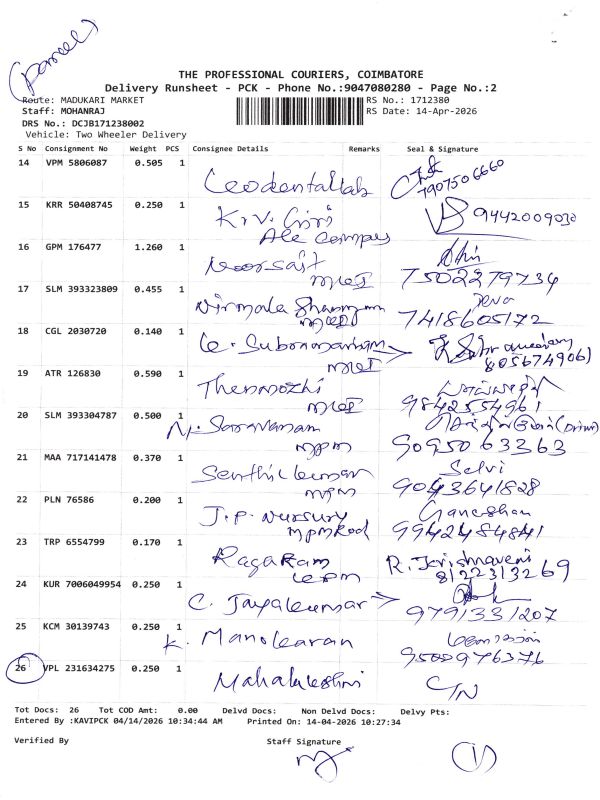 (Parcel)
THE PROFESSIONAL COURIERS, COIMBATORE
Delivery Runsheet - PCK - Phone No.:9047080280 - Page No.:2
Route: MADUKARI MARKET RS No.: 1712380
Staff: MOHANRAJ RS Date: 14-Apr-2026
DRS No.: DCJB171238002
Vehicle: Two Wheeler Delivery
S No Consignment No Weight PCS Consignee Details Remarks Seal & Signature
14 VPM 5806087 0.505 1
Leodentallab 7907506660
15 KRR 50408745 0.250 1
K.V. Giri 9442009030
16 GPM 176477 1.260 1
Noorsait 7502279734
17 SLM 393323809 0.455 1
Nirmala 7418605172
18 CGL 2030720 0.140 1
8056749061
19 ATR 126830 0.590 1
Thenmozhi 9842554961
20 SLM 393304787 0.500 1
N. Saravanam
mpm 9095063363
21 MAA 717141478 0.370 1
Senthilkumar Selvi
mpm 9043641828
22 PLN 76586 0.200 1
J.P. Nursury Ganeshan
mpm Rod 9942484841
23 TRP 6554799 0.170 1
Ragaram R.
8122313269
24 KUR 7006049954 0.250 1
C. Jayakumar 9791331207
25 KCM 30139743 0.250 1
K. Manokaran 9500976376
26 VPL 231634275 0.250 1
Mahalakshmi C/N
Tot Docs: 26 Tot COD Amt: 0.00 Delvd Docs: Non Delvd Docs: Delvy Pts:
Entered By :KAVIPCK 04/14/2026 10:34:44 AM Printed On: 14-04-2026 10:27:34
Verified By Staff Signature
1